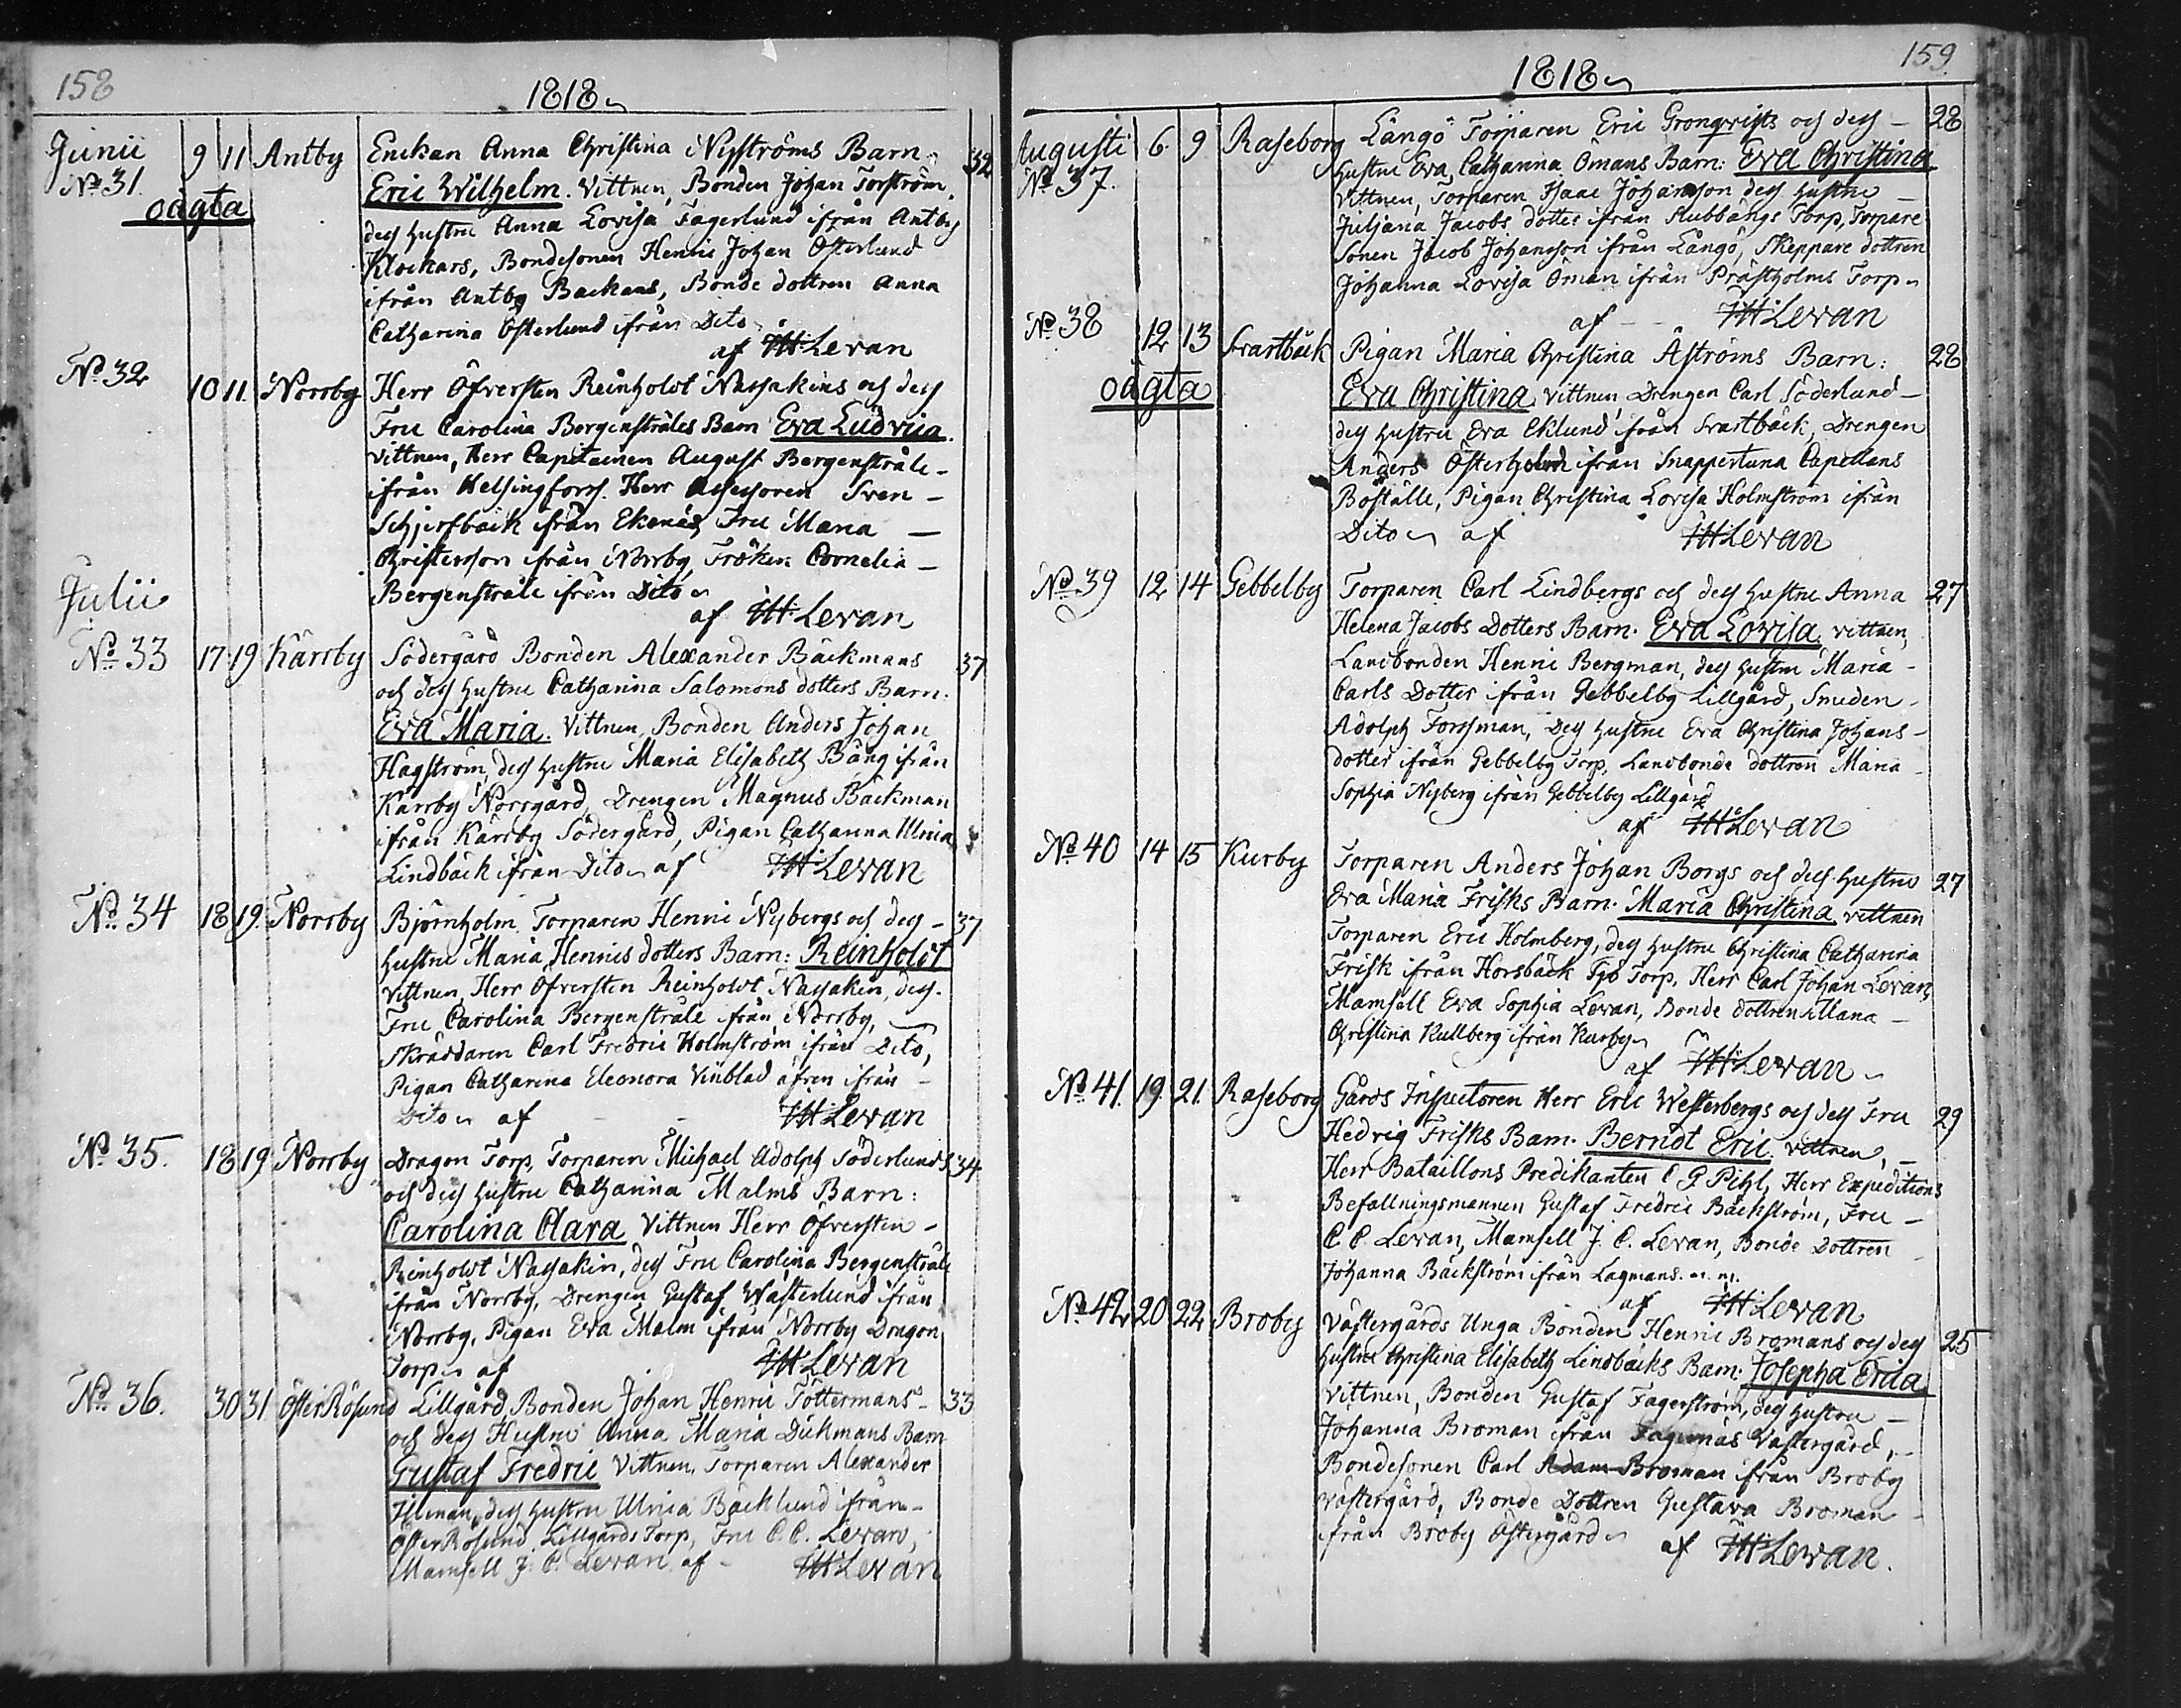 158
1818
Junii 9 11 Antby Enckan Anna Christina Nyströms Barn: 32
No 31. Eric Wilhelm. Vittnen, Bonden Johan Torström,
oägta dess Hustru Anna Lovisa Fagerlund ifrån Antby
Klockars, Bondesonen Henric Johan Österlund
ifrån Antby Backars, Bonde dottren Anna
Catharina Österlund ifrån Dito
af Levan
No 32 10 11. Norrby Herr Öfversten Reinholdt Nassakins och dess
Fru Carolina Bergenstråles Barn Eva Ludvica.
Vittnen, Herr Capitainen August Bergenstråle
ifrån Helsingfors. Herr Assessoren Sven
Schjerfbäck ifrån Ekenäs, Fru Maria
Christersson ifrån Norrby, Fröken Cornelia
Bergenstråle ifrån Dito
af Levan
Julii
No 33 17 19 Kärrby Södergård Bonden Alexander Bäckmans 37
och dess Hustru Catharina Salomons dotters Barn:
Eva Maria. Vittnen, Bonden Anders Johan
Hagström, dess Hustru Maria Elisabeth Bång ifrån
Kärrby Norrgård, Drengen Magnus Bäckman
ifrån Kärrby Södergård, Pigan Catharina Ulrica
Lindbäck ifrån Dito af Levan
No 34 18 19. Norrby Björnholm Torparen Henric Nybergs och dess 37
Hustru Maria Henrics dotters Barn: Reinholdt
Vittnen, Herr Öfversten Reinholdt Nassakin, dess
Fru Carolina Bergenstråle ifrån Norrby,
Skräddaren Carl Fredric Holmström ifrån Dito,
Pigan Catharina Eleonora Vinblad äfven ifrån
Dito af Levan
No 35. 18 19 Norrby Dragon Torp, Torparen Michael Adolph Söderlunds 34
och dess Hustru Catharina Malms Barn:
Carolina Clara Vittnen Herr Öfversten
Reinholdt Nassakin, dess Fru Carolina Bergenstråle
ifrån Norrby, Drengen Gustaf Wästerlund ifrån
Norrby, Pigan Eva Malm ifrån Norrby Dragon
Torp af Levan
No 36. 30 31 Öster Rösund Lillgård Bonden Johan Henric Töttermans 33
och dess Hustru Anna Maria Dickmans Barn
Gustaf Fredric Vittnen, Torparen Alexander
dess Hustru Ulrica Bäcklund ifrån
Öster Rösund Lillgårds Torp, Fru C. C. Levan,
Mamsell J. C. Levan af Levan
159.
1818
Augusti 6. 9 Raseborg Långö Torparen Eric Gronqvists och dess 28
No 37. Hustru Eva Catharina Ömans Barn: Eva Christina
Vittnen, Torparen Isaac Johansson dess Hustru
Juljana Jacobs dotter ifrån Stubbängs Torp, Torpare
Sonen Jacob Johansson ifrån Långö, Skeppare dottren
Johanna Lovisa Öman ifrån Prästholms Torp
af Levan
No 38 12 13 Svartbäck Pigan Maria Christina Åströms Barn: 28
oägta Eva Christina, Vittnen, Drengen Carl Söderlund
dess Hustru Eva Eklund ifrån Svartbäck, Drengen
Anders Österholm ifrån Snappertuna Capellans
Boställe, Pigan Christina Lovisa Holmström ifrån
Dito af Levan
No 39 12 14 Gebbelby Torparen Carl Lindbergs och dess Hustru Anna 27
Helena Jacobs Dotters Barn. Eva Lovisa, vittnen,
Landbonden Henric Bergman, dess Hustru Maria
Carls Dotter ifrån Gebbelby Lillgård, Smeden
Adolph Forssman, Dess Hustru Eva Christina Johans
dotter ifrån Gebbelby Torp, Landbonde dottren Maria
Sophia Nyberg ifrån Gebbelby Lillgård
af Levan
No 40 14 15 Kurby Torparen Anders Johan Borgs och dess Hustru 27
Eva Maria Frisks Barn. Maria Christina vittnen
Torparen Eric Holmberg, dess Hustru Christina Catharina
Frisk ifrån Horsbäck Torp, Herr Carl Johan Levan,
Mamsell Eva Sophia Levan, Bonde dottren Maria
Christina Kullberg ifrån Kurby
af Levan
No 41. 19. 21. Raseborg Gårds Inspectoren Herr Eric Westerbergs och dess Fru 29
Hedvig Frisks Barn. Berndt Eric. vittnen,
Herr Bataillons Predikanten C G Pihl, Herr Expeditions
Befallningsmannen Gustaf Fredric Bäckström, Fru
C. C. Levan, Mamsell J. C. Levan, Bonde Dottren
Johanna Bäckström ifrån Lagmans. m. m.
af Levan
No 42 20 22 Broby Västergårds Unga Bonden Henric Bromans och dess 25
Hustru Christina Elisabeth Lindbäcks Barn: Josepha Erica
Vittnen, Bonden Gustaf Fagerström, dess Hustru
Johanna Broman ifrån Västergård,
Bondesonen Carl Adam Broman ifrån Broby
Västergård, Bonde Dottren Gustava Broman
ifrån Broby Östergård af Levan.